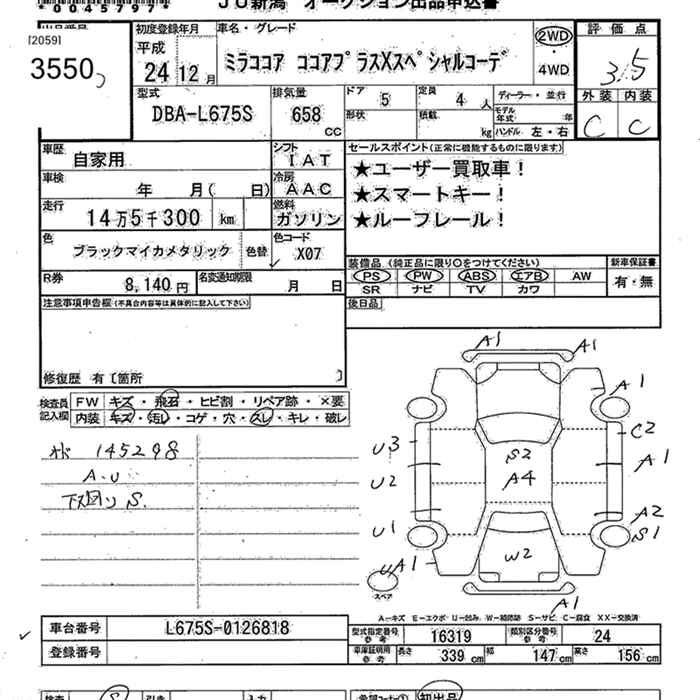 0045797
JU新潟 オークション出品申込書
[2059]
3550
初度登録年月
平成
24 12月
車名・グレード
ミラココア ココアプラスXスペシャルコーデ
2WD
・
4WD
評価点
3.5
外装 内装
C C
型式
DBA-L675S
排気量
658
cc
ドア 5
定員 4 人
形状
積載 kg
ディーラー・並行
モデル年式 年
ハンドル 左・右
車歴
自家用
シフト
IAT
車検
年 月( 日)
冷房
AAC
走行
14万5千300 km
燃料
ガソリン
色
ブラックマイカメタリック
色替
色コード
X07
R券
8,140円
名変通知期限
月 日
セールスポイント(正常に機能するものに限ります)
★ユーザー買取車!
★スマートキー!
★ルーフレール!
装備品(純正品に限り○をつけてください)
新車保証書
PS PW ABS エアB AW
SR ナビ TV カワ
有・無
後日品
注意事項申告欄(不具合内容等は具体的に記入して下さい)
修復歴 有〔箇所 〕
検査員記入欄
FW キズ・飛石・ヒビ割・リペア跡・×要
内装 キズ・汚レ・コゲ・穴・スレ・キレ・破レ
145298
A.U
下回りS.
A1 A1
A1
U3 C2
S2
A1
U2 A4
A2
U1 S1
W2
UA1
スペア
A1
A-キズ E-エクボ U-凹み W-補修跡 S-サビ C-腐食 XX-交換済
車台番号 L675S-0126818
登録番号
型式指定番号 参考 16319
類別区分番号 参考 24
車庫証明用 参考
長さ 339 cm 幅 147 cm 高さ 156 cm
初出品